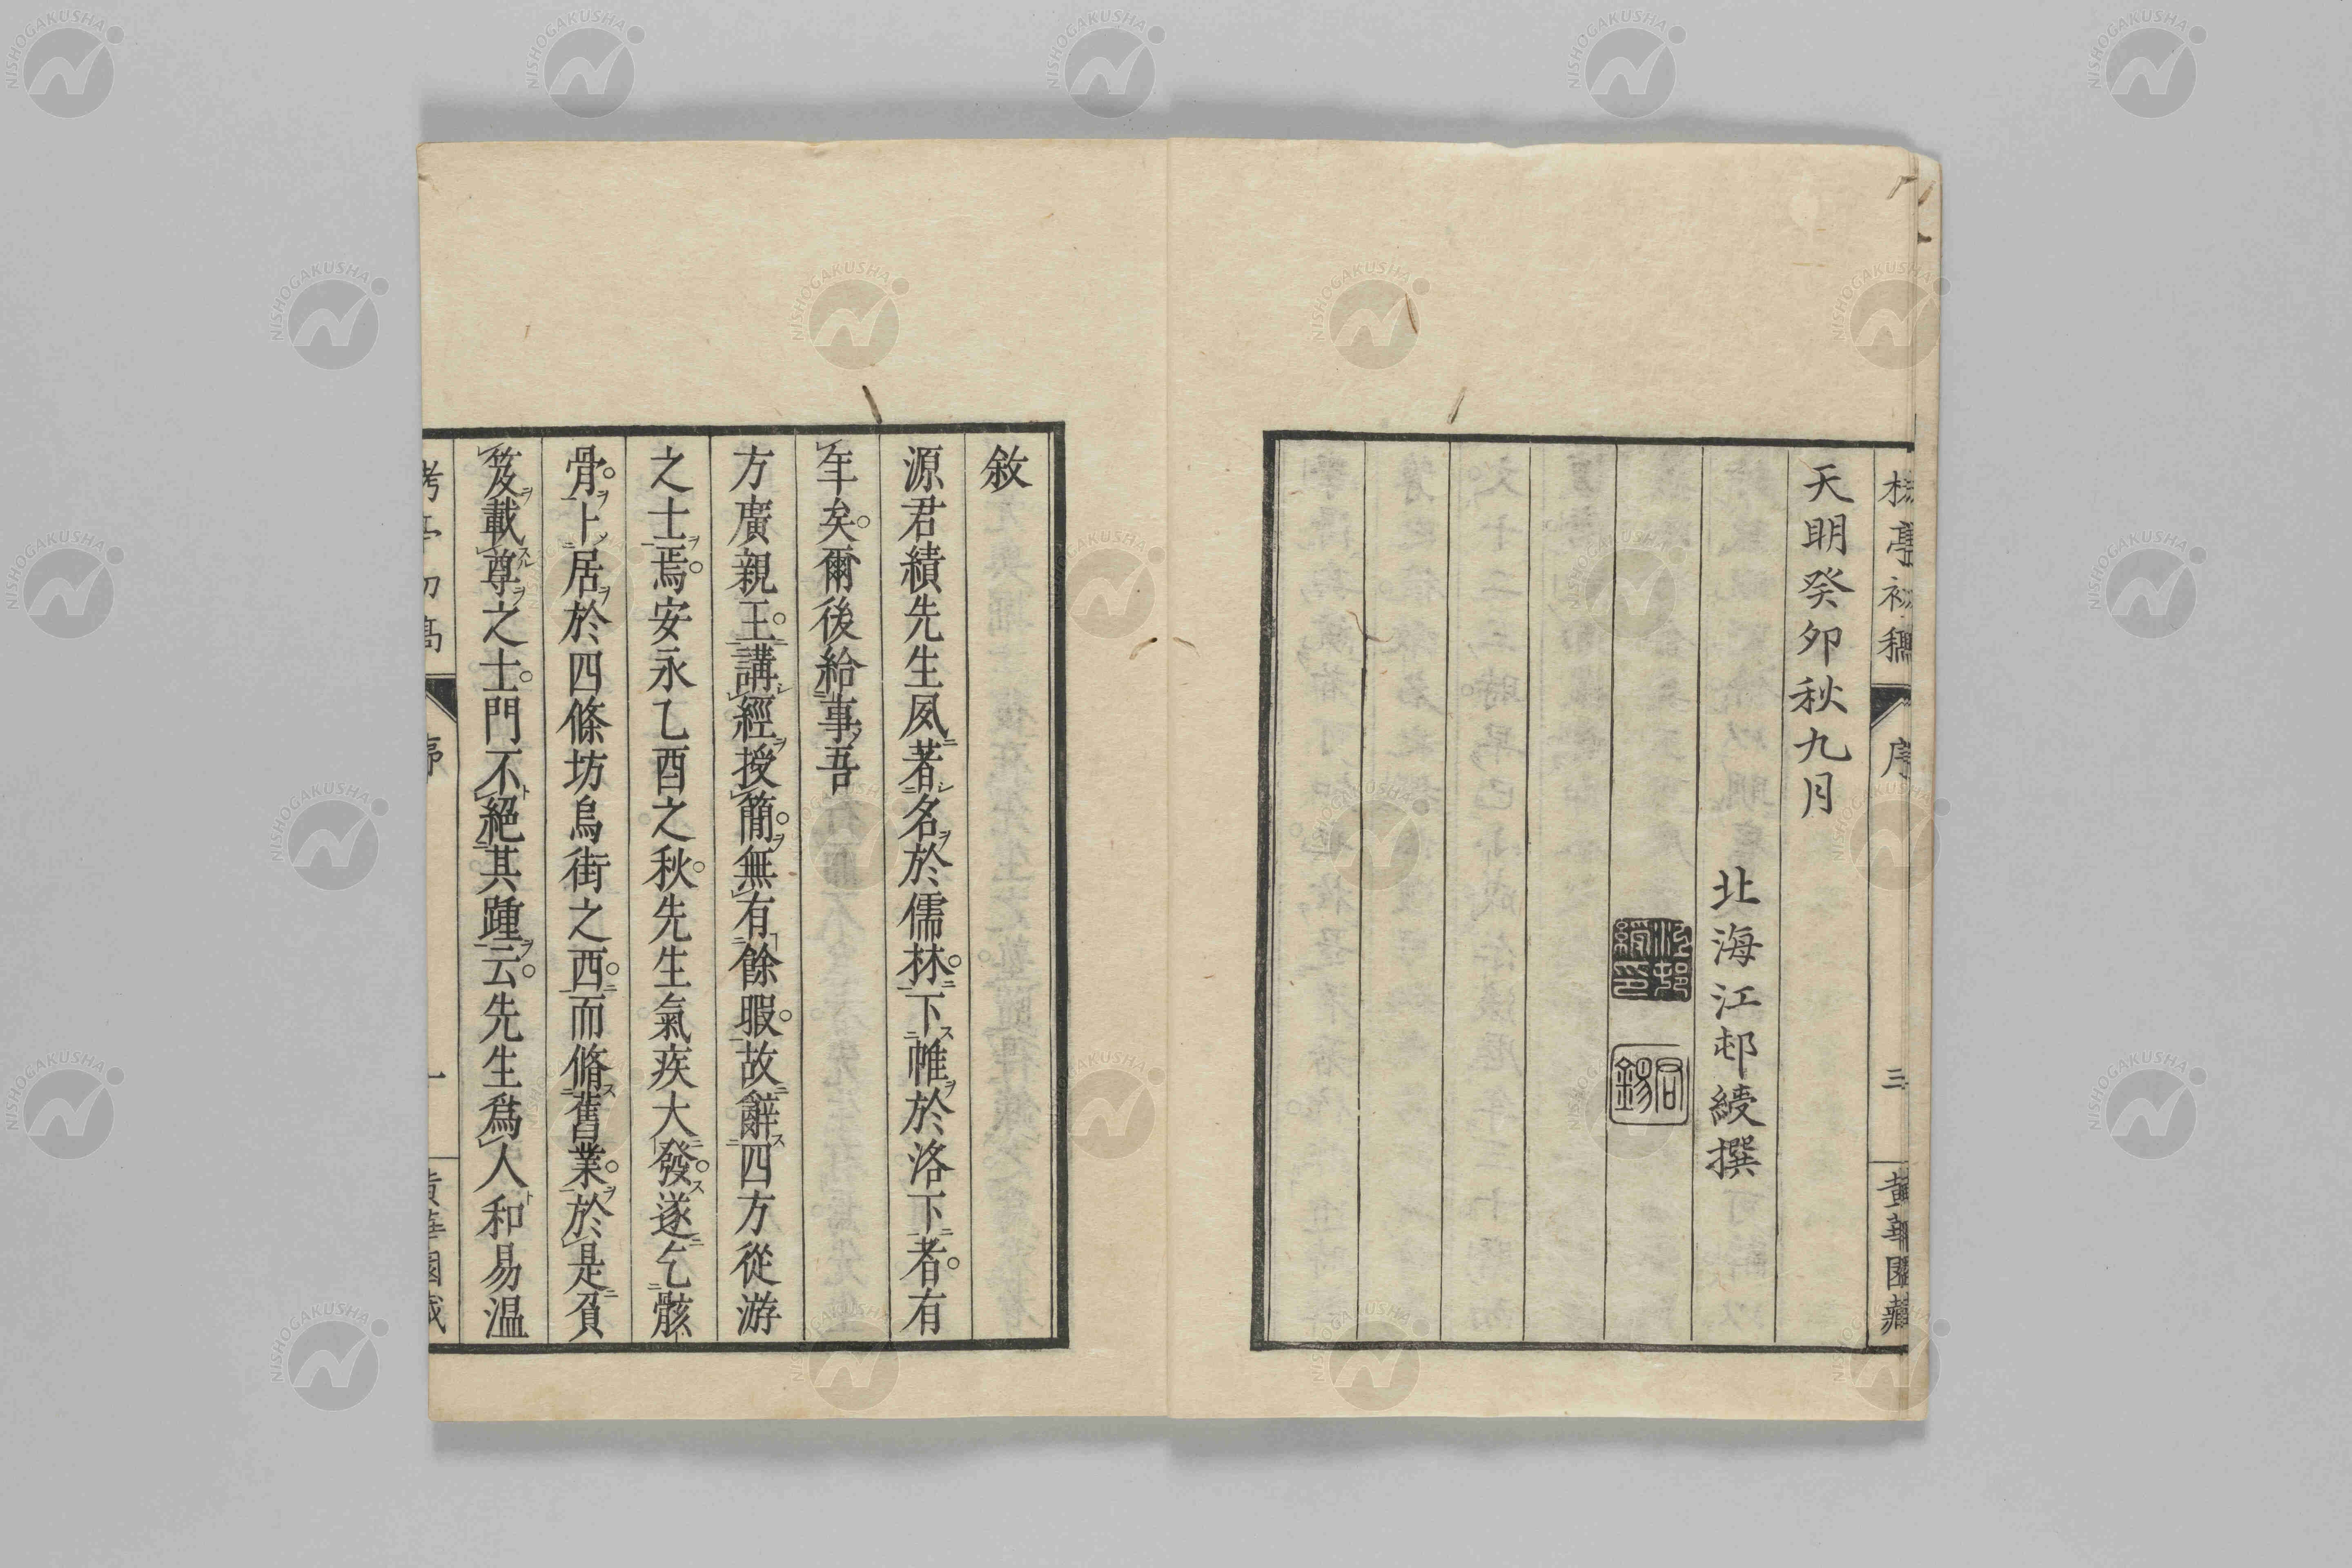 亭初稿 序 三 黄華園藏
天明癸卯秋九月
北海江邨綬撰
江邨綬印
君錫
敘
源君績先生夙著名於儒林下帷於洛下者有
年矣爾後給事吾
方廣親王講經授簡無有餘暇故辭四方從游
之士焉安永乙酉之秋先生氣疾大發遂乞骸
骨上居於四條坊烏街之西而脩舊業於是負
笈載尊之士門不絕其踵云先生爲人和易温
序 一 黄華園藏
NISHOGAKUSHA